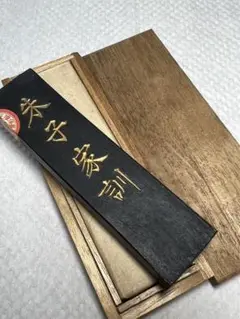 朱子家訓